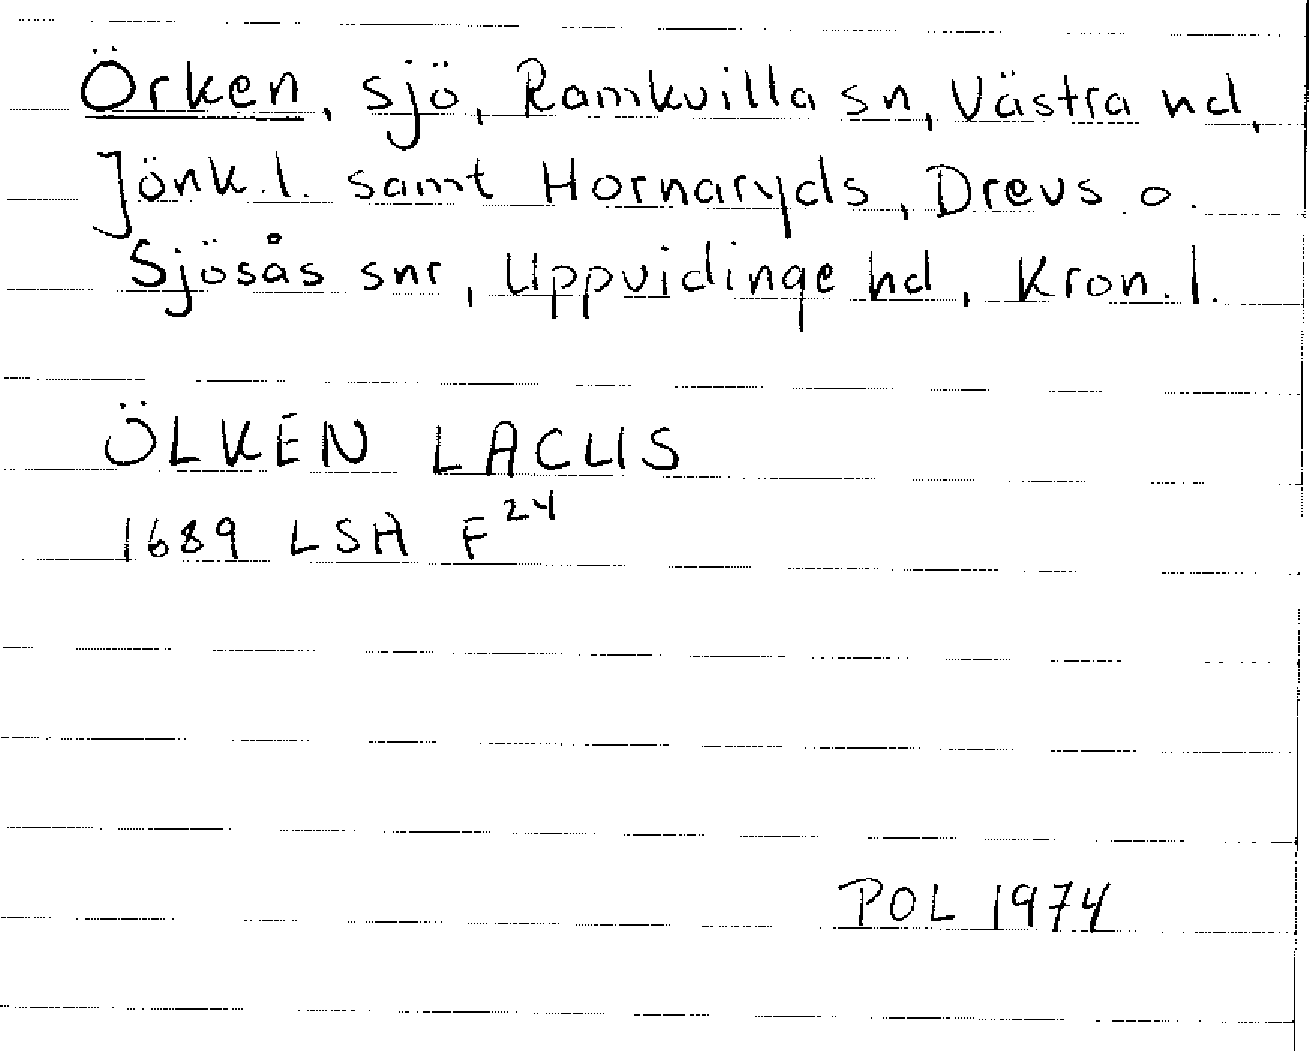 Örken, sjö, Ramkvilla sn, Västra hd,
Jönk. l. samt Hornaryds, Drevs o.
Sjösås snr, Uppvidinge hd, Kron. l.
ÖLKEN LACUS
1689 LSH F 24
POL 1974